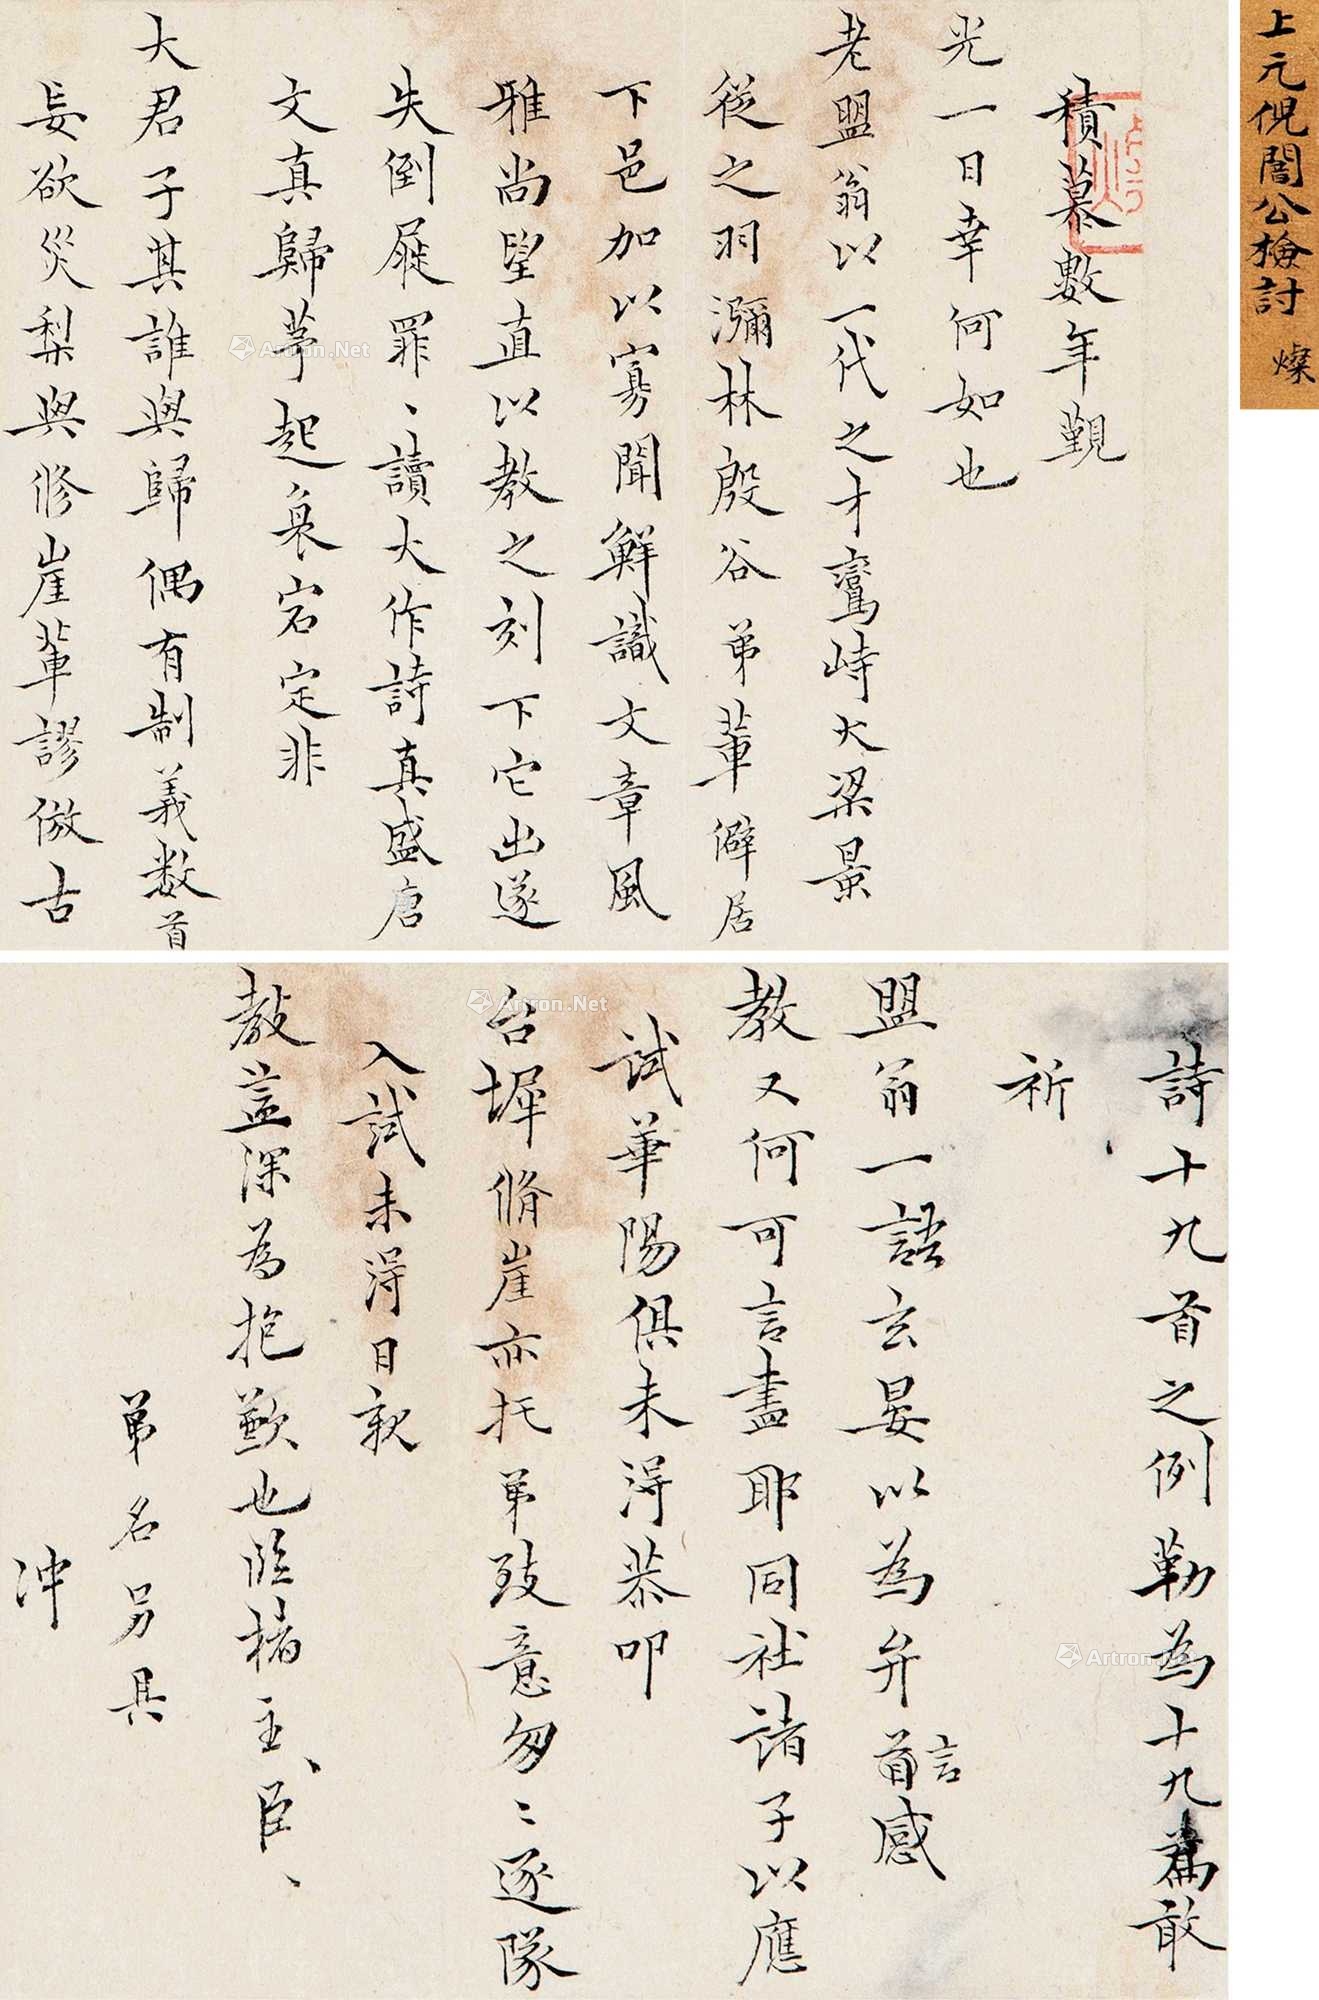 上元倪闇公檢討 燦
積慕數年覲
光一日幸何如也
老盟翁以一代之才鸞峙大梁景
從之羽瀰林殷谷弟輩僻居
下邑加以寡聞鮮識文章風
雅尚望直以教之刻下它出遂
失倒屣罪〻讀大作詩真盛唐
文真歸茅起衰宕定非
大君子其誰與歸偶有制義數首
妄欲災梨與修崖輩謬倣古
詩十九首之例勒為十九篇敢
祈
盟翁一語玄晏以為弁言感
教又何可言盡耶同社諸子以應
試華陽俱未得恭叩
台墀脩崖亦托弟致意匆〻逐隊
入試未得日親
教益深為抱歉也臨楮主、臣、
弟名另具
冲
Artron.Net
Artron.Net
Artron.Net